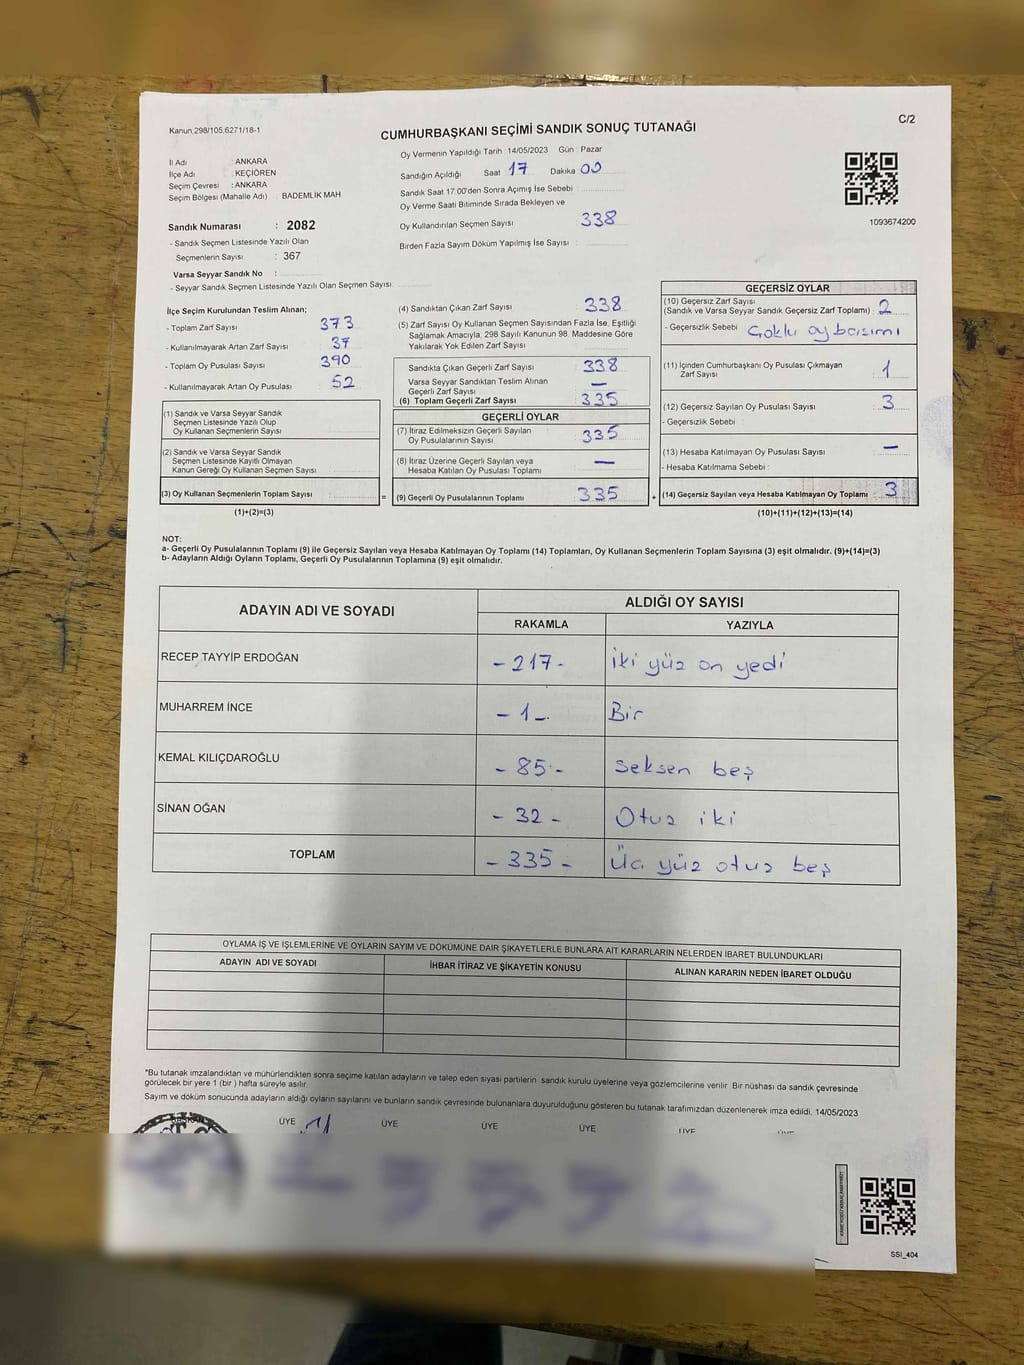 Kanun,298/105,6271/18-1
C/2
CUMHURBAŞKANI SEÇİMİ SANDIK SONUÇ TUTANAĞI
İl Adı : ANKARA
İlçe Adı : KEÇİÖREN
Seçim Çevresi : ANKARA
Seçim Bölgesi (Mahalle Adı) : BADEMLİK MAH
Oy Vermenin Yapıldığı Tarih : 14/05/2023 Gün : Pazar
Sandığın Açıldığı Saat 17 Dakika 00
Sandık Saat 17:00'den Sonra Açımış İse Sebebi :
Oy Verme Saati Bitiminde Sırada Bekleyen ve
Oy Kullandırılan Seçmen Sayısı 338
Birden Fazla Sayım Döküm Yapılmış İse Sayısı :
1093674200
Sandık Numarası : 2082
- Sandık Seçmen Listesinde Yazılı Olan
Seçmenlerin Sayısı : 367
Varsa Seyyar Sandık No :
- Seyyar Sandık Seçmen Listesinde Yazılı Olan Seçmen Sayısı:
İlçe Seçim Kurulundan Teslim Alınan;
- Toplam Zarf Sayısı 373
- Kullanılmayarak Artan Zarf Sayısı 37
- Toplam Oy Pusulası Sayısı 390
- Kullanılmayarak Artan Oy Pusulası 52
(1) Sandık ve Varsa Seyyar Sandık
Seçmen Listesinde Yazılı Olup
Oy Kullanan Seçmenlerin Sayısı
(2) Sandık ve Varsa Seyyar Sandık
Seçmen Listesinde Kayıtlı Olmayan
Kanun Gereği Oy Kullanan Seçmen Sayısı
(3) Oy Kullanan Seçmenlerin Toplam Sayısı =
(1)+(2)=(3)
(4) Sandıktan Çıkan Zarf Sayısı 338
(5) Zarf Sayısı Oy Kullanan Seçmen Sayısından Fazla İse, Eşitliği
Sağlamak Amacıyla, 298 Sayılı Kanunun 98. Maddesine Göre
Yakılarak Yok Edilen Zarf Sayısı
Sandıkta Çıkan Geçerli Zarf Sayısı 338
Varsa Seyyar Sandıktan Teslim Alınan
Geçerli Zarf Sayısı —
(6) Toplam Geçerli Zarf Sayısı 335
GEÇERLİ OYLAR
(7) İtiraz Edilmeksizin Geçerli Sayılan
Oy Pusulalarının Sayısı 335
(8) İtiraz Üzerine Geçerli Sayılan veya
Hesaba Katılan Oy Pusulası Toplamı —
(9) Geçerli Oy Pusulalarının Toplamı 335 +
GEÇERSİZ OYLAR
(10) Geçersiz Zarf Sayısı
(Sandık ve Varsa Seyyar Sandık Geçersiz Zarf Toplamı) : 2
- Geçersizlik Sebebi Çoklu oy basımı
(11) İçinden Cumhurbaşkanı Oy Pusulası Çıkmayan
Zarf Sayısı 1
(12) Geçersiz Sayılan Oy Pusulası Sayısı 3
- Geçersizlik Sebebi :
(13) Hesaba Katılmayan Oy Pusulası Sayısı —
- Hesaba Katılmama Sebebi :
(14) Geçersiz Sayılan veya Hesaba Katılmayan Oy Toplamı 3
(10)+(11)+(12)+(13)=(14)
NOT:
a- Geçerli Oy Pusulalarının Toplamı (9) ile Geçersiz Sayılan veya Hesaba Katılmayan Oy Toplamı (14) Toplamları, Oy Kullanan Seçmenlerin Toplam Sayısına (3) eşit olmalıdır. (9)+(14)=(3)
b- Adayların Aldığı Oyların Toplamı, Geçerli Oy Pusulalarının Toplamına (9) eşit olmalıdır.
ADAYIN ADI VE SOYADI ALDIĞI OY SAYISI
RAKAMLA YAZIYLA
RECEP TAYYİP ERDOĞAN - 217 - iki yüz on yedi
MUHARREM İNCE - 1 - Bir
KEMAL KILIÇDAROĞLU - 85 - seksen beş
SİNAN OĞAN - 32 - Otuz iki
TOPLAM - 335 - Üç yüz otuz beş
OYLAMA İŞ VE İŞLEMLERİNE VE OYLARIN SAYIM VE DÖKÜMÜNE DAİR ŞİKAYETLERLE BUNLARA AİT KARARLARIN NELERDEN İBARET BULUNDUKLARI
ADAYIN ADI VE SOYADI İHBAR İTİRAZ VE ŞİKAYETİN KONUSU ALINAN KARARIN NEDEN İBARET OLDUĞU
*Bu tutanak imzalandıktan ve mühürlendikten sonra seçime katılan adayların ve talep eden siyasi partilerin sandık kurulu üyelerine veya gözlemcilerine verilir. Bir nüshası da sandık çevresinde
görülecek bir yere 1 (bir ) hafta süreyle asılır.
Sayım ve döküm sonucunda adayların aldığı oyların sayılarını ve bunların sandık çevresinde bulunanlara duyurulduğunu gösteren bu tutanak tarafımızdan düzenlenerek imza edildi. 14/05/2023
ÜYE ÜYE ÜYE ÜYE ÜYE
SSI_404